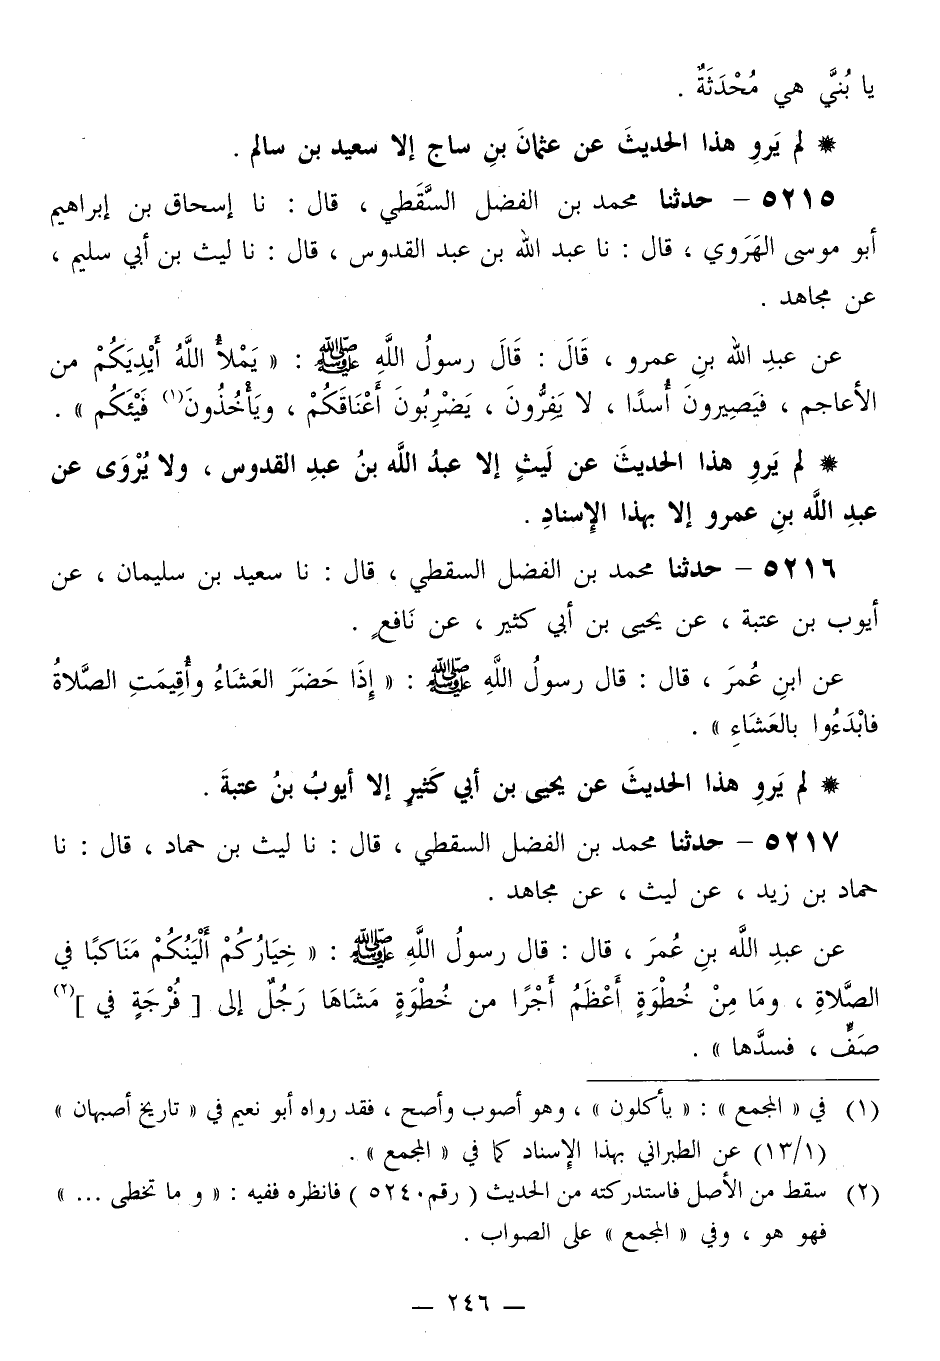 يا بُنيَّ هي مُحْدَثَةٌ .
* لم يَروِ هذا الحديثَ عن عثمانَ بنِ ساج إلا سعيد بن سالم .
٥٢١٥ – حدثنا محمد بن الفضل السَّقَطي ، قال : نا إسحاق بن إبراهيم
أبو موسى الهَرَوي ، قال : نا عبد الله بن عبد القدوس ، قال : نا ليث بن أبي سليم ،
عن مجاهد .
عن عبدِ الله بنِ عمرو ، قَالَ : قَالَ رسولُ اللَّهِ ﷺ : « يَمْلأُ اللَّهُ أَيْدِيَكُمْ من
الأعاجم ، فيَصِيرونَ أُسدًا ، لا يَفِرُّونَ ، يَضْرِبُونَ أَعْنَاقَكُمْ ، ويَأْخُذُونَ(١) فَيْئَكُم » .
* لم يَروِ هذا الحديثَ عن لَيثٍ إلا عبدُ اللَّه بنُ عبدِ القدوس ، ولا يُرْوَى عن
عبدِ اللَّه بنِ عمرو إلا بهذا الإِسنادِ .
٥٢١٦ – حدثنا محمد بن الفضل السقطي ، قال : نا سعيد بن سليمان ، عن
أيوب بن عتبة ، عن يحيى بن أبي كثير ، عن نَافعٍ .
عن ابنِ عُمرَ ، قال : قال رسولُ اللَّهِ ﷺ : « إِذَا حَضَرَ العَشَاءُ وأُقِيمَتِ الصَّلاةُ
فابْدَءُوا بالعَشَاءِ » .
* لم يَروِ هذا الحديثَ عن يحيى بن أبي كَثيرٍ إلا أيوبُ بنُ عتبةَ .
٥٢١٧ – حدثنا محمد بن الفضل السقطي ، قال : نا ليث بن حماد ، قال : نا
حماد بن زيد ، عن ليث ، عن مجاهد .
عن عبدِ اللَّه بنِ عُمرَ ، قال : قال رسولُ اللَّهِ ﷺ : « خِيَارُكُمْ أَلْيَنُكُمْ مَنَاكبًا في
الصَّلاةِ ، ومَا مِنْ خُطْوَةٍ أَعْظَمُ أَجْرًا من خُطْوَةٍ مَشَاهَا رَجُلٌ إلى [ فُرْجَةٍ في ](٢)
صَفٍّ ، فسدَّها » .
(١) في « المجمع » : « يأكلون » ، وهو أصوب وأصح ، فقد رواه أبو نعيم في « تاريخ أصبهان »
(١٣/١) عن الطبراني بهذا الإسناد كما في « المجمع » .
(٢) سقط من الأصل فاستدركته من الحديث ( رقم ٥٢٤٠ ) فانظره ففيه : « و ما تخطى ... »
فهو هو ، وفي « المجمع » على الصواب .
– ٢٤٦ –